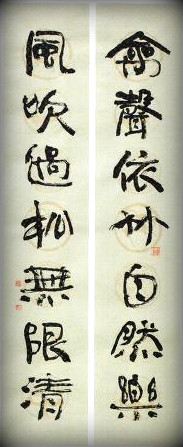 禽聲依竹自然樂
風吹過松無限清